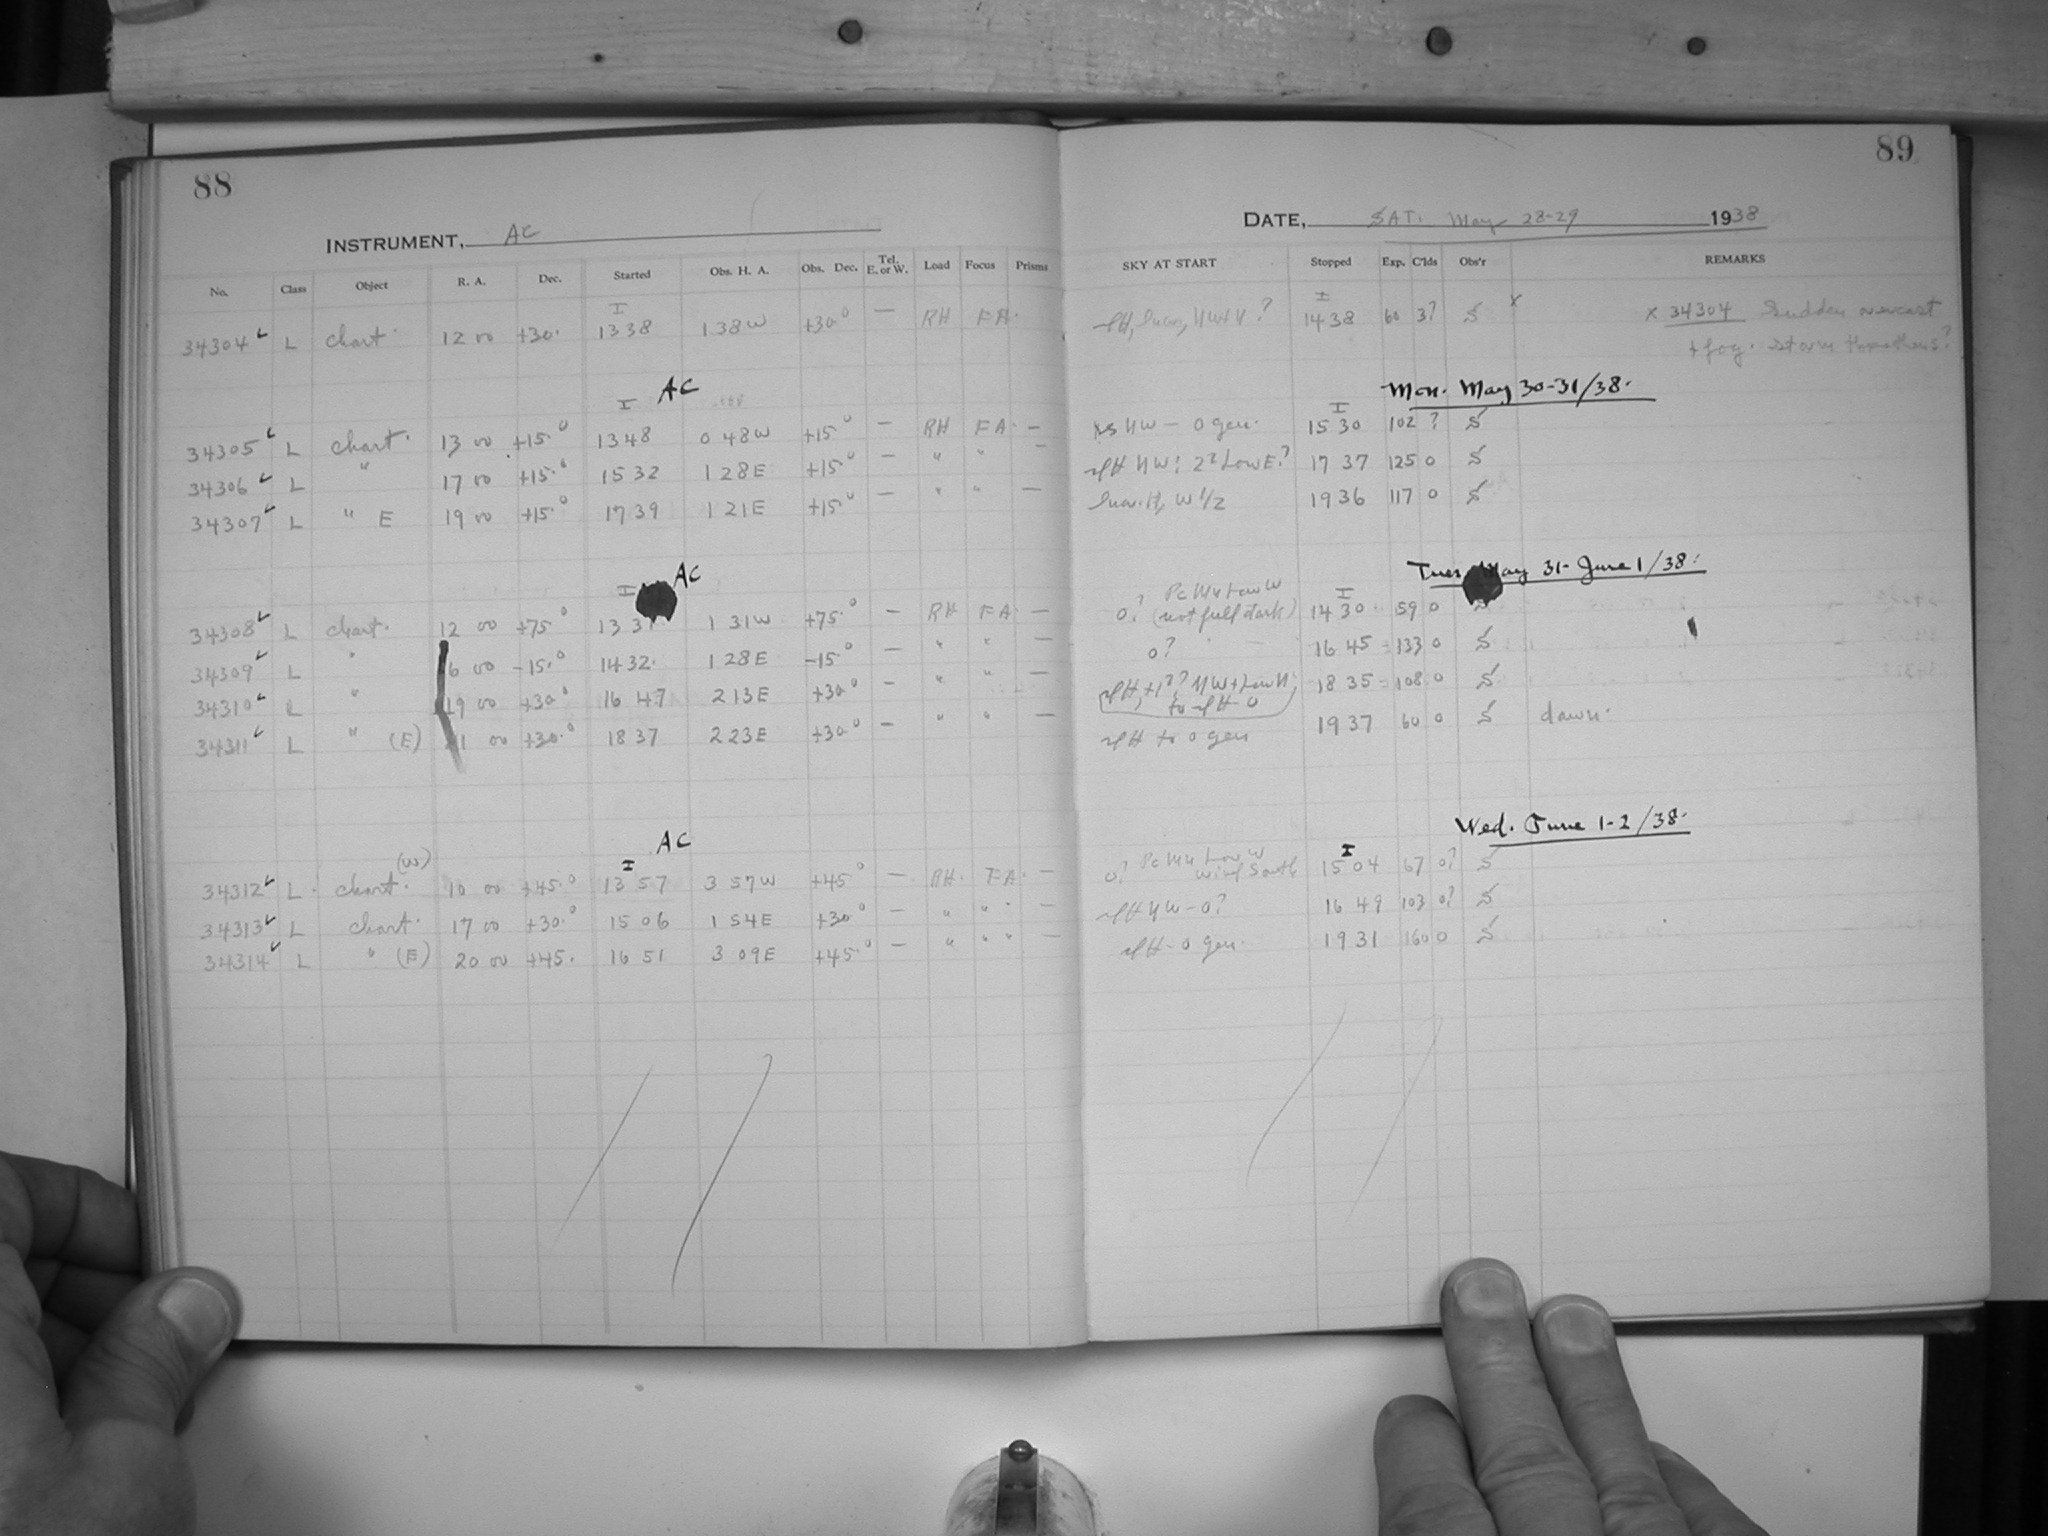 88
INSTRUMENT, AC
No. Class Object R. A. Dec. Started Obs. H. A. Obs. Dec. Tel. E. or W. Load Focus Prisms
I
34304 L chart. 12 00 +30. 13 38 1 38 W +30° — RH FA.
AC
I
34305 L chart. 13 00 +15.° 13 48 0 48 W +15° — RH FA. —
34306 L " 17 00 +15.° 15 32 1 28 E +15° — " " —
34307 L " E 19 00 +15.° 17 39 1 21 E +15° — " " —
AC
I
34308 L chart. 12 00 +75.° 13 31 1 31 W +75.° — RH FA. —
34309 L " 16 00 -15.° 14 32. 1 28 E -15.° — " " —
34310 L " 19 00 +30° 16 47 2 13 E +30° — " "
34311 L " (E) 21 00 +30.° 18 37 2 23 E +30° — " " —
AC
I
34312 L. chart. (W) 10 00 +45.° 13 57 3 57 W +45° — RH. FA. —
34313 L chart. 17 00 +30.° 15 06 1 54 E +30° — " " —
34314 L " (E) 20 00 +45. 16 51 3 09 E +45.° — " " —
89
DATE, SAT. May 28-29 1938
SKY AT START Stopped Exp. C'lds Obs'r REMARKS
I
14 38 60 3? S x x 34304 Sudden overcast
+ fog.
Mon. May 30-31/38.
I
NW — 0 gen. 15 30 102 ? S
NW; Low E.? 17 37 125 0 S
H, W 1/2 19 36 117 0 S
Tues May 31 - June 1/38.
Low W I
0? (not full dark) 14 30 59 0 S
0? 16 45 133 0 S
NW + Low N; 18 35 108 0 S
to 0
to 0 gen 19 37 60 0 S dawn.
Wed. June 1-2/38.
Low W I
0? Wind South 15 04 67 0? S
NW - 0? 16 49 103 0? S
- 0 gen. 19 31 160 0 S